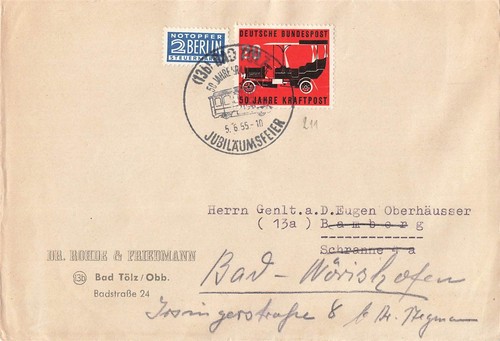 NOTOPFER
2 BERLIN
STEUERMARKE
DEUTSCHE BUNDESPOST
50 JAHRE KRAFTPOST
(13b) BAD
50 JAHRE
5.6.55-10
JUBILÄUMSFEIER
211
Herrn Genlt.a.D.Eugen Oberhäusser
(13a) Bamberg
Schranne 9 a
Bad-Wörishofen
Irsingerstraße 8 b. Dr. Stegmann
DR. ROHDE & FRIEDMANN
13b Bad Tölz/Obb.
Badstraße 24